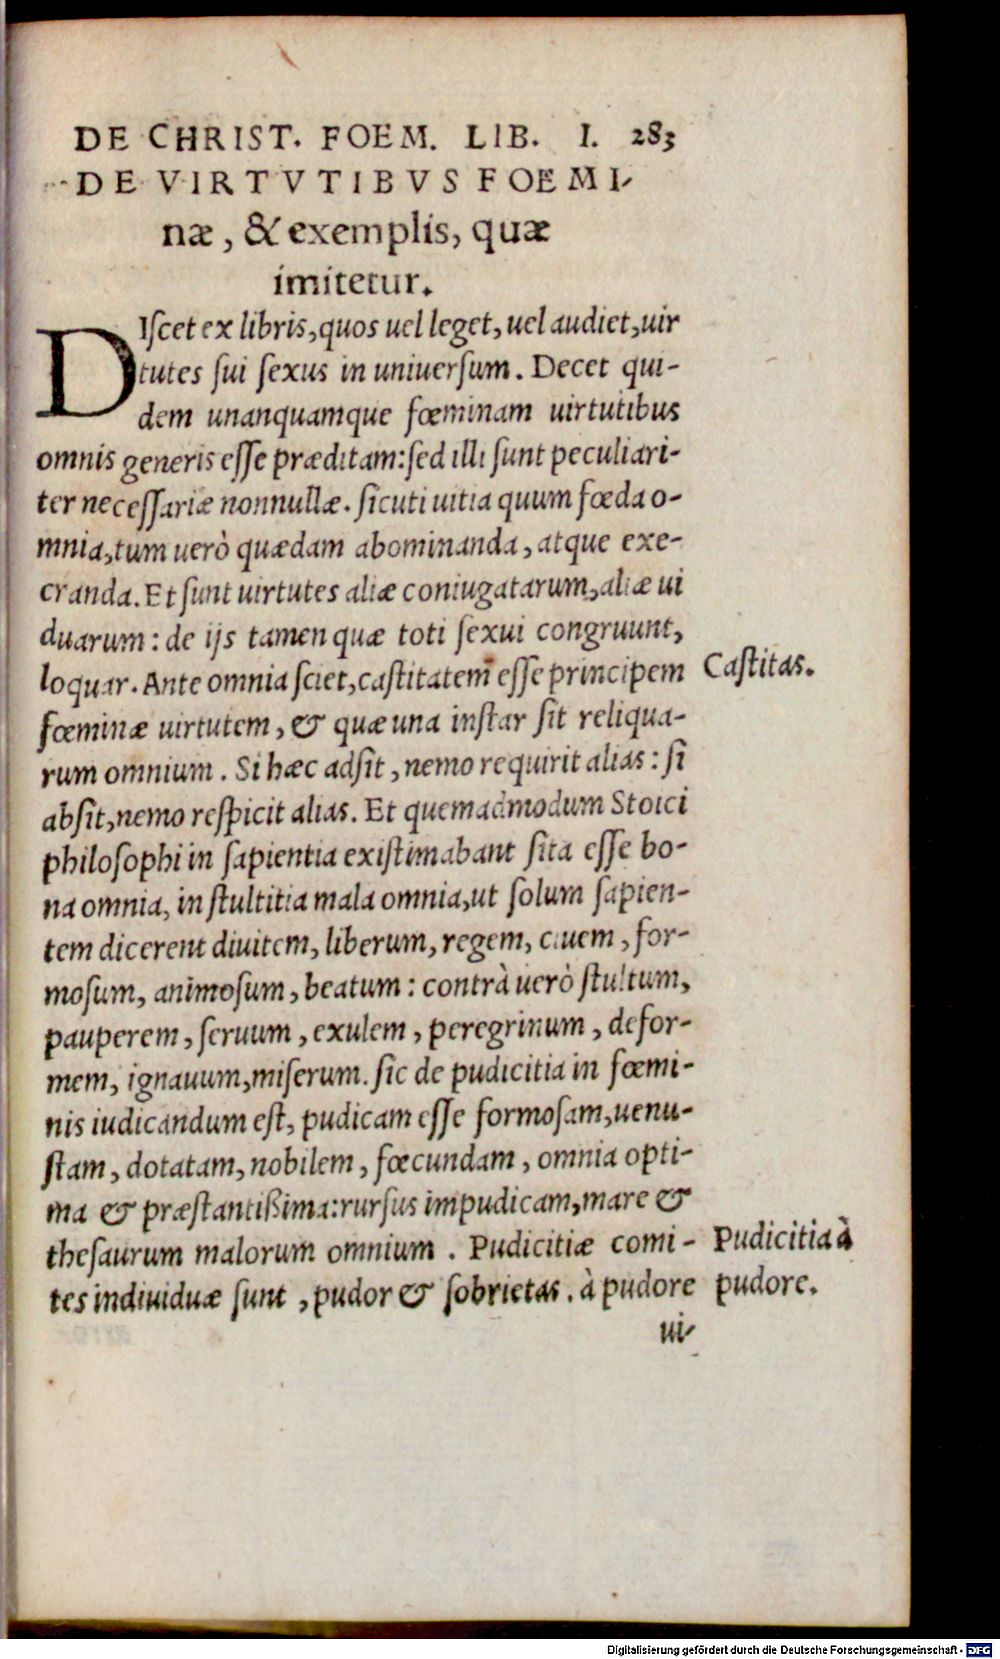 DE CHRIST. FOEM. LIB. I. 283
DE VIRTVTIBVS FOEMI-
næ, & exemplis, quæ
imitetur.
DIſcet ex libris, quos uel leget, uel audiet, uir
tutes ſui ſexus in uniuerſum. Decet qui-
dem unanquamque fœminam uirtutibus
omnis generis eſſe præditam: ſed illi ſunt peculiari-
ter neceſſariæ nonnullæ. ſicuti uitia quum fœda o-
mnia, tum uerò quædam abominanda, atque exe-
cranda. Et ſunt uirtutes aliæ coniugatarum, aliæ ui
duarum: de ijs tamen quæ toti ſexui congruunt,
loquar. Ante omnia ſciet, caſtitatem eſſe principem
Caſtitas.
fœminæ uirtutem, & quæ una inſtar ſit reliqua-
rum omnium. Si hæc adſit, nemo requirit alias: ſi
abſit, nemo reſpicit alias. Et quemadmodum Stoici
philoſophi in ſapientia exiſtimabant ſita eſſe bo-
na omnia, in ſtultitia mala omnia, ut ſolum ſapien-
tem dicerent diuitem, liberum, regem, ciuem, for-
moſum, animoſum, beatum: contrà uerò ſtultum,
pauperem, ſeruum, exulem, peregrinum, defor-
mem, ignauum, miſerum. ſic de pudicitia in fœmi-
nis iudicandum eſt, pudicam eſſe formoſam, uenu-
ſtam, dotatam, nobilem, fœcundam, omnia opti-
ma & præſtantißima: rurſus impudicam, mare &
theſaurum malorum omnium. Pudicitiæ comi-
tes indiuiduæ ſunt, pudor & ſobrietas. à pudore
Pudicitia à
pudore.
ui-
Digitalisierung gefördert durch die Deutsche Forschungsgemeinschaft - DFG